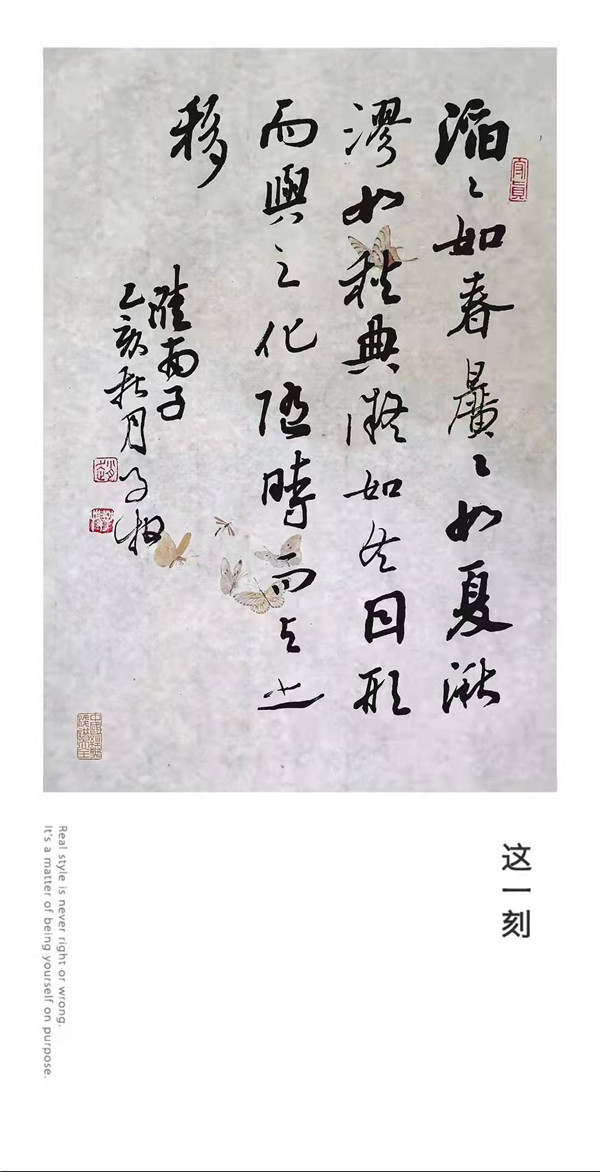 滔〻如春曠〻如夏湫
漻如秋典凝如冬因形
而與之化隨時而与之
移
淮南子
亥秋月
这一刻
Real style is never right or wrong.
It's a matter of being yourself on purpose.